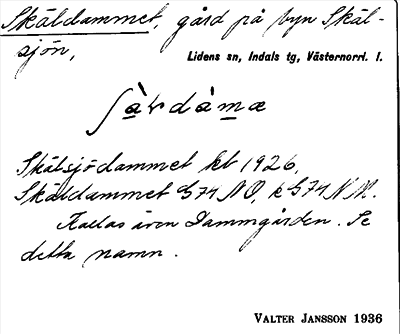 Skäldammet, gård på byn Skäl-
sjön,
Lidens sn, Indals tg, Västernorrl. l.
Skälsjödammet kt 1926,
Skäldammet G74 NO, k G74 N.M.
Kallas även Dammgården. Se
detta namn.
VALTER JANSSON 1936